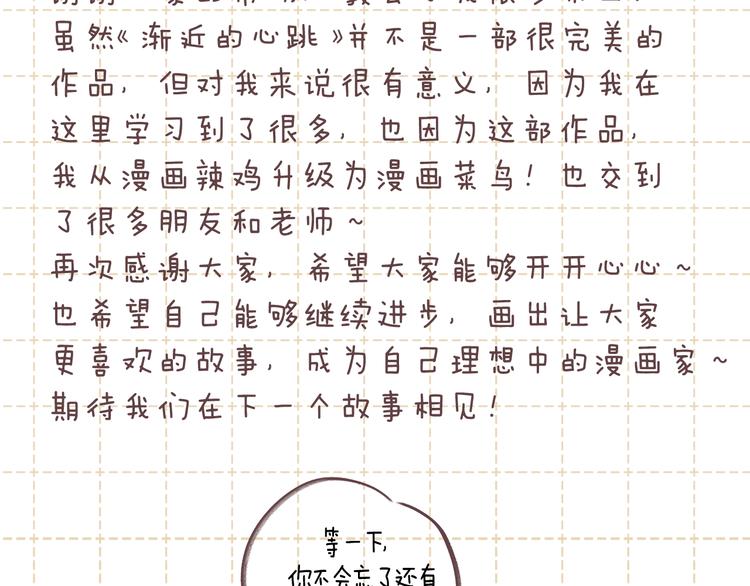 虽然《渐近的心跳》并不是一部很完美的
作品，但对我来说很有意义，因为我在
这里学习到了很多，也因为这部作品，
我从漫画辣鸡升级为漫画菜鸟！也交到
了很多朋友和老师~
再次感谢大家，希望大家能够开开心心~
也希望自己能够继续进步，画出让大家
更喜欢的故事，成为自己理想中的漫画家~
期待我们在下一个故事相见！
等一下，
你不会忘了还有